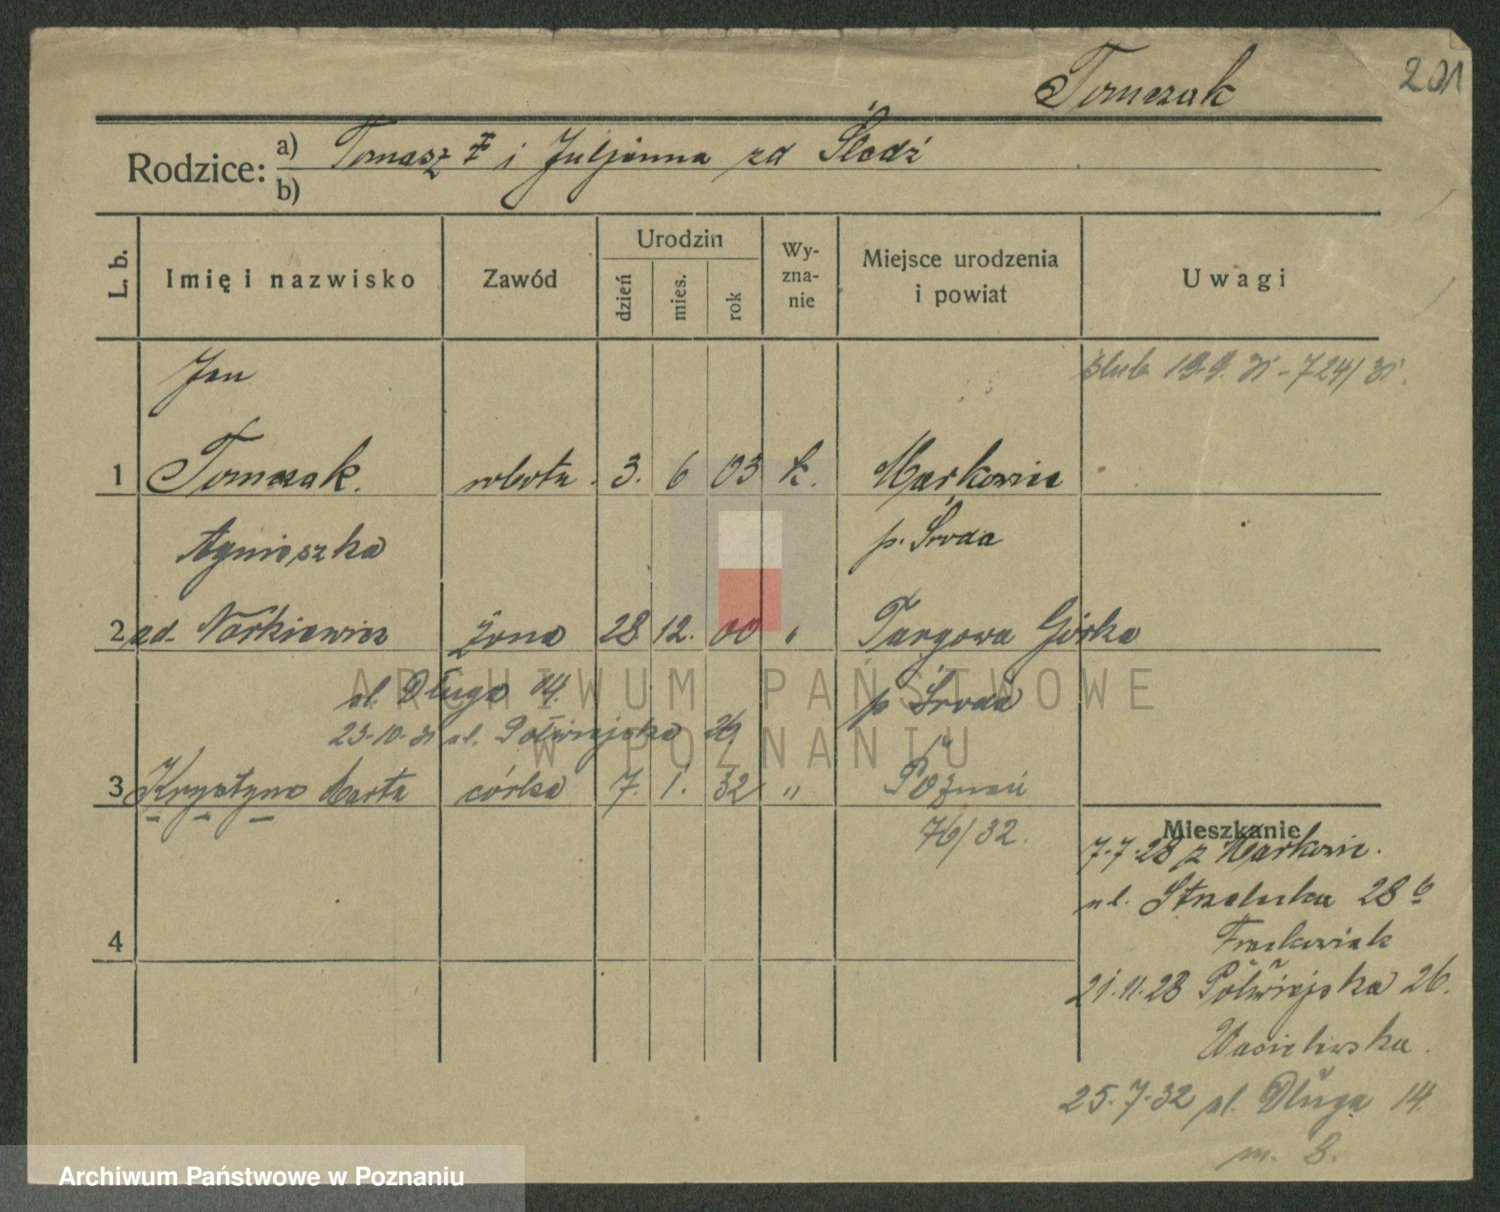 Tomczak
201
Rodzice: a) Tomasz i Juljanna zd Śledź
b)
L. b.
Imię i nazwisko
Zawód
Urodzin
dzień
mies.
rok
Wy-
zna-
nie
Miejsce urodzenia
i powiat
Uwagi
Jan
ślub 19.9.31 - 724/31.
1 Tomczak. robotn. 3. 6 03 k. Markowice
Agnieszka
p. Środa
2 zd. Norkiewicz żona 28 12. 00 " Targowa Górka
ul. Długa 14.
p Środa
23-10-31 ul. Półwiejska 26
3 Krystyna Marta córka 7. 1. 32 " Poznań
76/32.
4
Mieszkanie
7.7.28 z Markowic.
ul. Strzelecka 28 b
Frackowiak
21.11.28 Półwiejska 26.
Wasielewska.
25.7.32 ul. Długa 14.
m. 8.
ARCHIWUM PAŃSTWOWE
W POZNANIU
Archiwum Państwowe w Poznaniu